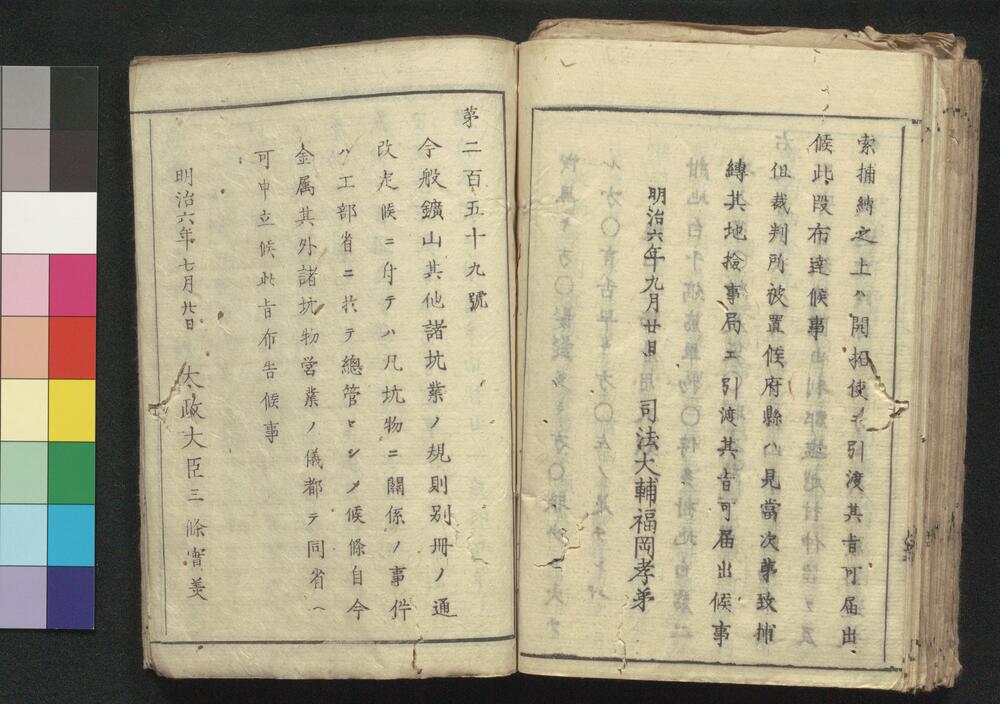 索捕縛之上ハ開拓使ヱ引渡其旨可届出
候此段布達候事
但裁判所被置候府縣ハ見當次第致捕
縛其地検事局ヱ引渡其旨可届出候事
明治六年九月廿日 司法大輔福岡孝弟
第二百五十九號
今般鑛山其他諸坑業ノ規則別冊ノ通
改定候ニ付テハ凡坑物ニ關係ノ事件
ハ工部省ニ於テ總管セシメ候條自今
金属其外諸坑物営業ノ儀都テ同省ヘ
可申立候此旨布告候事
明治六年七月廿日 太政大臣三條實美